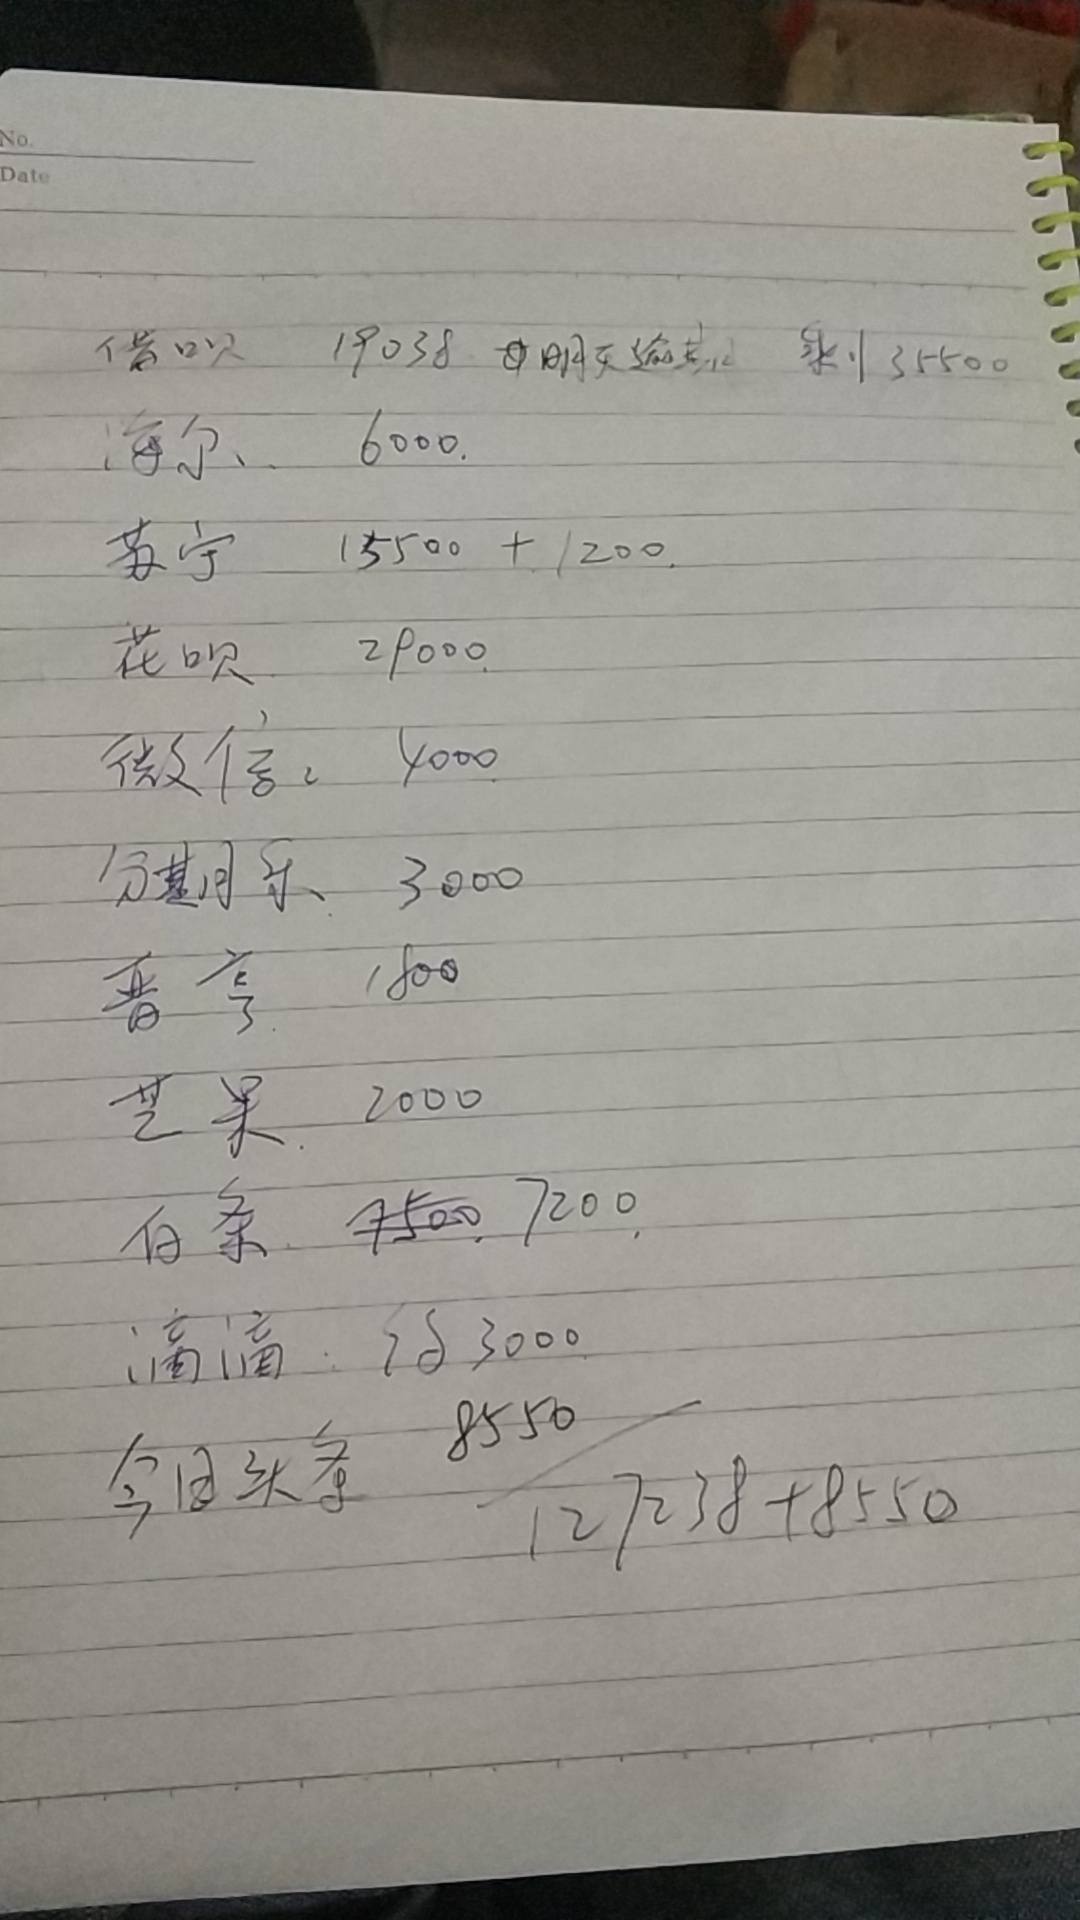 No.
Date
借呗 19038 明天 剩 35500
海尔、 6000.
苏宁 15500 + 1200.
花呗 29000.
微信: 4000
分期乐、 3000
普亨 1800
芝果. 2000
白条. 7500. 7200.
滴滴. 3000.
今日头条 8550
127238+8550